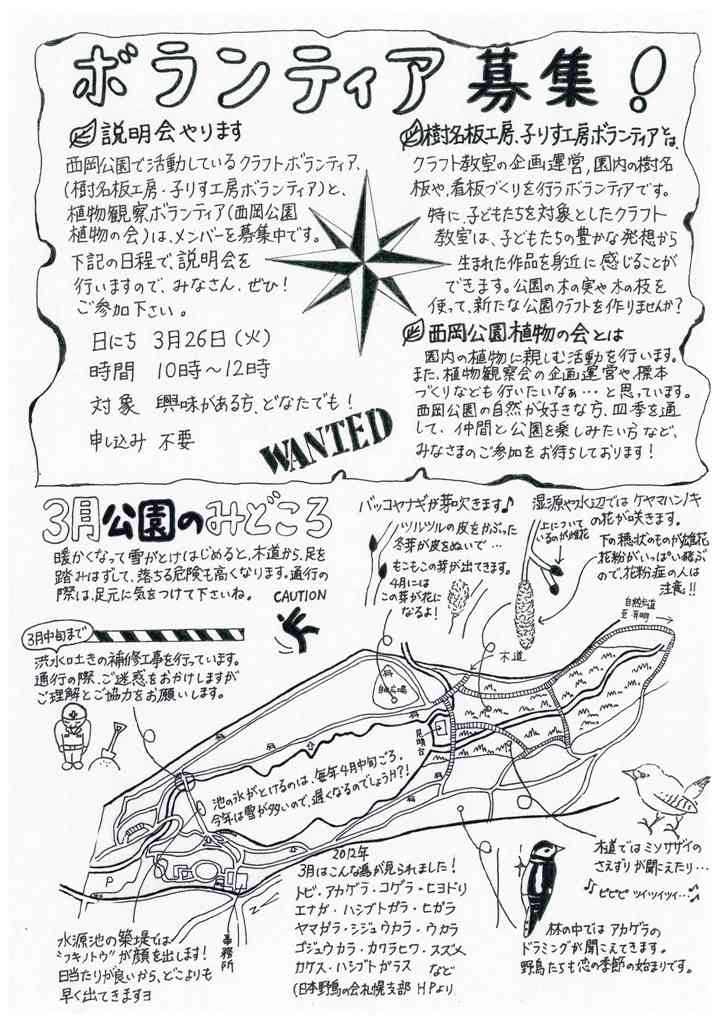 ボランティア募集！
説明会やります
西岡公園で活動しているクラフトボランティア、
(樹名板工房・子りす工房ボランティア)と、
植物観察ボランティア(西岡公園
植物の会)は、メンバーを募集中です。
下記の日程で、説明会を
行いますので、みなさん、ぜひ！
ご参加下さい。
日にち 3月26日(火)
時間 10時〜12時
対象 興味がある方、どなたでも！
申し込み 不要
WANTED
樹名板工房、子りす工房ボランティアとは、
クラフト教室の企画運営，園内の樹名
板や、看板づくりを行うボランティアです。
特に、子どもたちを対象としたクラフト
教室は、子どもたちの豊かな発想から
生まれた作品を身近に感じることが
できます。公園の木の実や木の枝を
使って、新たな公園クラフトを作りませんか？
西岡公園植物の会とは
園内の植物に親しむ活動を行います。
また、植物観察会の企画運営や、標本
づくりなども行いたいなぁ…と思っています。
西岡公園の自然が好きな方、四季を通
して、仲間と公園を楽しみたい方など、
みなさまのご参加をお待ちしております！
3月公園のみどころ
暖かくなって雪がとけはじめると、木道から、足を
踏みはずして、落ちる危険も高くなります。通行の
際は、足元に気をつけて下さいね。
CAUTION
3月中旬まで
洪水吐きの補修工事を行っています。
通行の際、ご迷惑をおかけしますが
ご理解とご協力をお願いします。
バッコヤナギが芽吹きます♪
ツルツルの皮をかぶった
冬芽が皮をぬいで…
もこもこの芽が出てきます。
4月には
この芽が花に
なるよ！
湿原や水辺ではケヤマハンノキ
の花が咲きます。
上について
いるのが雌花
下の穂状のものが雄花
花粉がいっぱい飛ぶ
ので、花粉症の人は
注意!!
自然歩道
木道
見晴台
池の氷がとけるのは、毎年4月中旬ごろ。
今年は雪が多いので、遅くなるのでしょうか?!
P
事務所
水源池の築堤では
"フキノトウ"が顔を出します！
日当たりが良いから、どこよりも
早く出てきますヨ
2012年
3月はこんな鳥が見られました！
トビ・アカゲラ・コゲラ・ヒヨドリ
エナガ・ハシブトガラ・ヒガラ
ヤマガラ・シジュウカラ・ウカラ
ゴジュウカラ・カワラヒワ・スズメ
カケス・ハシブトガラス など
(日本野鳥の会札幌支部 HPより
木道ではミソサザイの
さえずりが聞こえたり…
♪ピピピ ツイツイツイ…♪
林の中ではアカゲラの
ドラミングが聞こえてきます。
野鳥たちも恋の季節の始まりです。